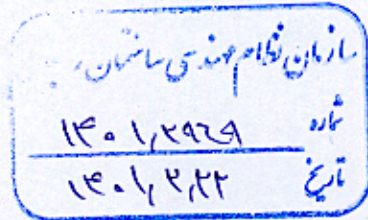 سازمان نظام مهندسی ساختمان
شماره ۱۴۰۱,۲۹۶۹
تاریخ ۱۴۰۱,۳,۲۲